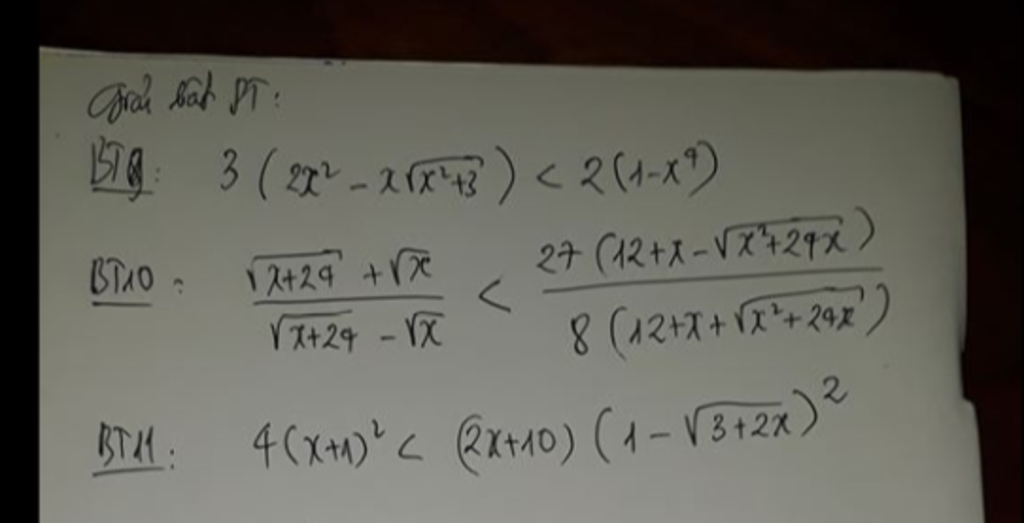 Giải bất PT:
BT9: 3 ( 2x² - x√(x²+3) ) < 2(1-x⁴)
BT10: (√(x+24) + √x) / (√(x+24) - √x) < 27 (12+x-√(x²+24x)) / 8 (12+x+√(x²+24x))
BT11: 4(x+1)² < (2x+10) (1-√(3+2x))²